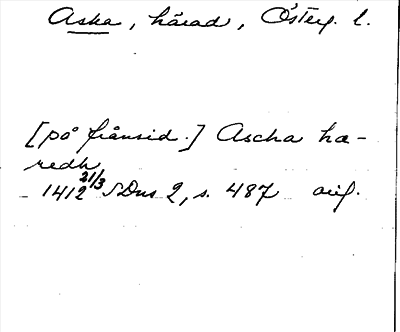 Aska, härad, Österg. l.
[på frånsid.] Ascha hæ-
redh
1412 21/3 SDns 2, s. 487 orig.